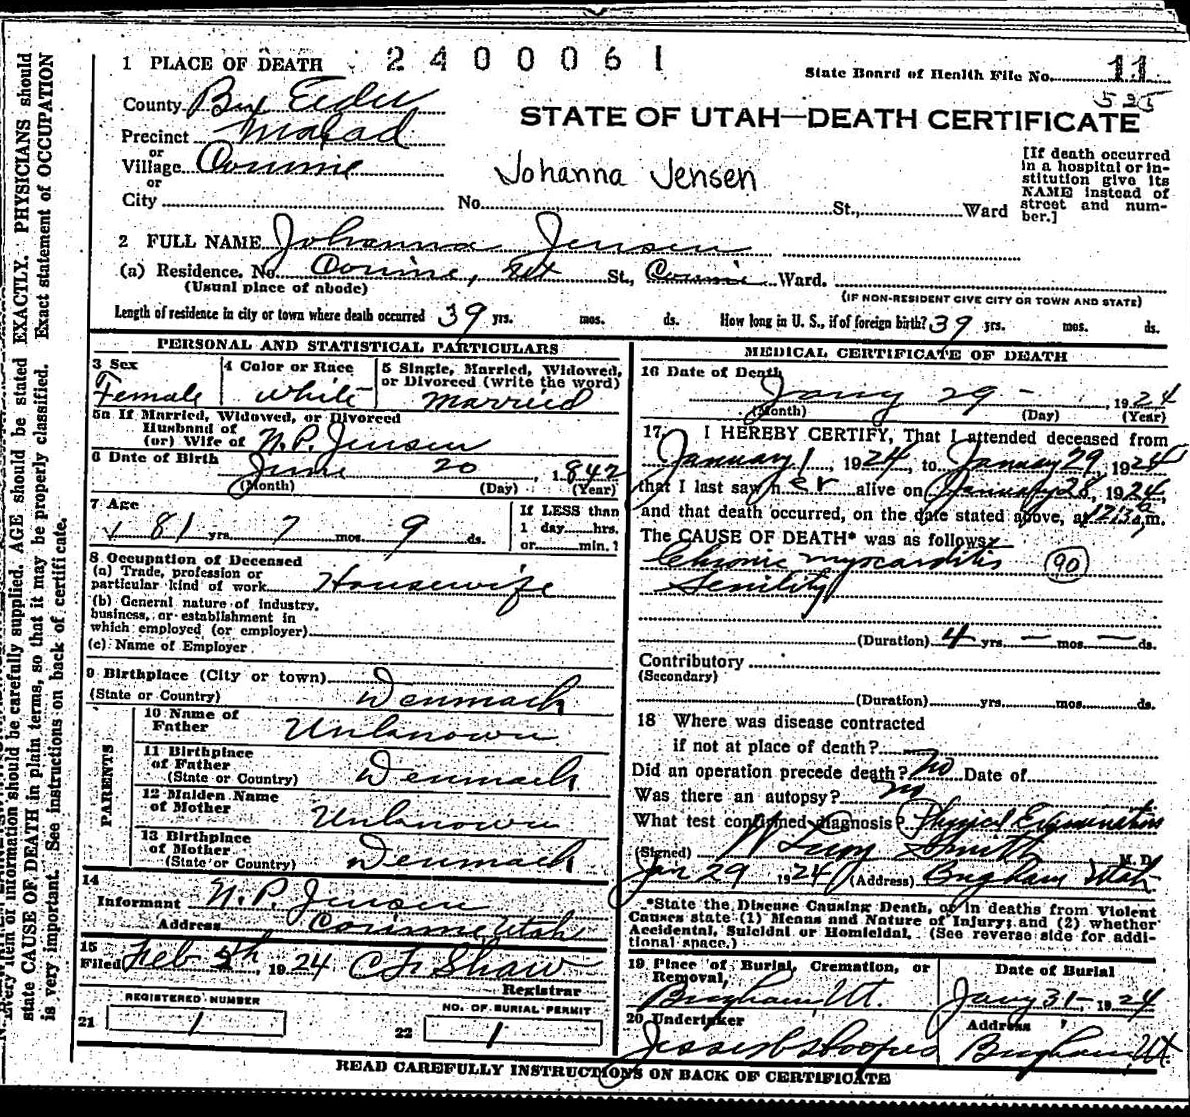 1 PLACE OF DEATH 2400061
State Board of Health File No. 11
525
County Box Elder
STATE OF UTAH—DEATH CERTIFICATE
Precinct Malad
or
Village Corinne
or
City No. St., Ward
Johanna Jensen
[If death occurred in a hospital or in-
stitution give its
NAME instead of
street and num-
ber.]
2 FULL NAME Johanna Jensen
(a) Residence, No. Corinne, Ut St., Corinne Ward.
(Usual place of abode)
(IF NON-RESIDENT GIVE CITY OR TOWN AND STATE)
Length of residence in city or town where death occurred 39 yrs. mos. ds. How long in U. S., if of foreign birth? 39 yrs. mos. ds.
PERSONAL AND STATISTICAL PARTICULARS
3 Sex
Female
4 Color or Race
White
5 Single, Married, Widowed,
or Divorced (write the word)
Married
5a If Married, Widowed, or Divorced
Husband of
(or) Wife of N. P. Jensen
6 Date of Birth
June 20, 1842
(Month) (Day) (Year)
7 Age
81 yrs. 7 mos. 9 ds.
If LESS than
1 day hrs.
or min.?
8 Occupation of Deceased
(a) Trade, profession or
particular kind of work Housewife
(b) General nature of industry,
business, or establishment in
which employed (or employer)
(c) Name of Employer
9 Birthplace (City or town)
(State or Country) Denmark
PARENTS
10 Name of
Father Unknown
11 Birthplace
of Father
(State or Country) Denmark
12 Maiden Name
of Mother Unknown
13 Birthplace
of Mother
(State or Country) Denmark
14
Informant N. P. Jensen
Address Corinne Utah
15
Filed Feb 5th, 1924 C F Shaw
Registrar
REGISTERED NUMBER
21 1
NO. OF BURIAL PERMIT
22 1
MEDICAL CERTIFICATE OF DEATH
16 Date of Death
Jany 29 1924
(Month) (Day) (Year)
17 I HEREBY CERTIFY, That I attended deceased from
January 1, 1924, to January 29, 1924
that I last saw her alive on January 28, 1924,
and that death occurred, on the date stated above, at m.
The CAUSE OF DEATH* was as follows:
Chronic myocarditis 90
Senility
(Duration) 4 yrs. — mos. — ds.
Contributory
(Secondary)
(Duration) yrs. mos. ds.
18 Where was disease contracted
if not at place of death?
Did an operation precede death? no Date of
Was there an autopsy? no
What test confirmed diagnosis? Physical Examination
(Signed) Smith M. D.
Jan 29 1924 (Address) Brigham Utah
*State the Disease Causing Death, or in deaths from Violent
Causes state (1) Means and Nature of Injury; and (2) whether
Accidental, Suicidal or Homicidal. (See reverse side for addi-
tional space.)
19 Place of Burial, Cremation, or
Removal,
Brigham Ut.
Date of Burial
Jany 31- 1924
20 Undertaker
Address
Brigham, Ut.
READ CAREFULLY INSTRUCTIONS ON BACK OF CERTIFICATE
Every item of information should be carefully supplied. AGE should be stated EXACTLY. PHYSICIANS should
state CAUSE OF DEATH in plain terms, so that it may be properly classified. Exact statement of OCCUPATION
is very important. See instructions on back of certificate.